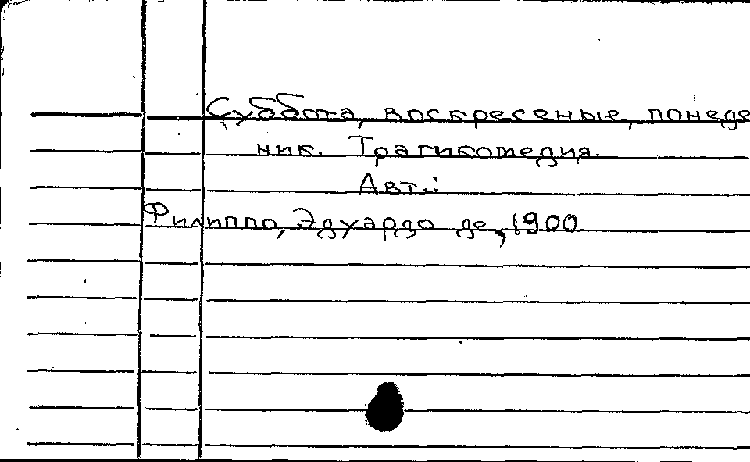 Суббота, воскресенье, понеде
ник. Трагикомедия.
Авт.:
Филиппо, Эдуардо де, 1900